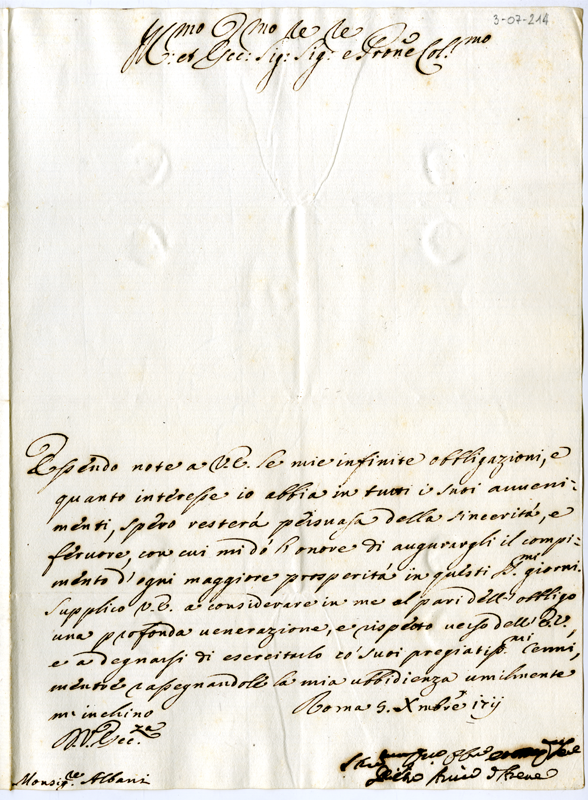 3-07-214
Ill.mo et Ecc: Sig: Sig.re e Prone Col.mo
Essendo note a V.E. le mie infinite obbligazioni, e
quanto interesse io abbia in tutti i suoi avveni-
menti, spero resterà persuasa della sincerità, e
fervore, con cui mi dò l'onore di augurargli il compi-
mento d'ogni maggiore prosperità in questi S.mi giorni.
Supplico V.E. a considerare in me al pari dell'obbligo
una profonda venerazione, e rispetto verso dell'E.V.,
e a degnarsi di esercitarlo co' suoi pregiatiss.mi cenni,
mentre rassegnandole la mia ubbidienza umilmente
m'inchino
Roma 5. Xmbre
D.V. Ecc.za
Monsig.re Albani